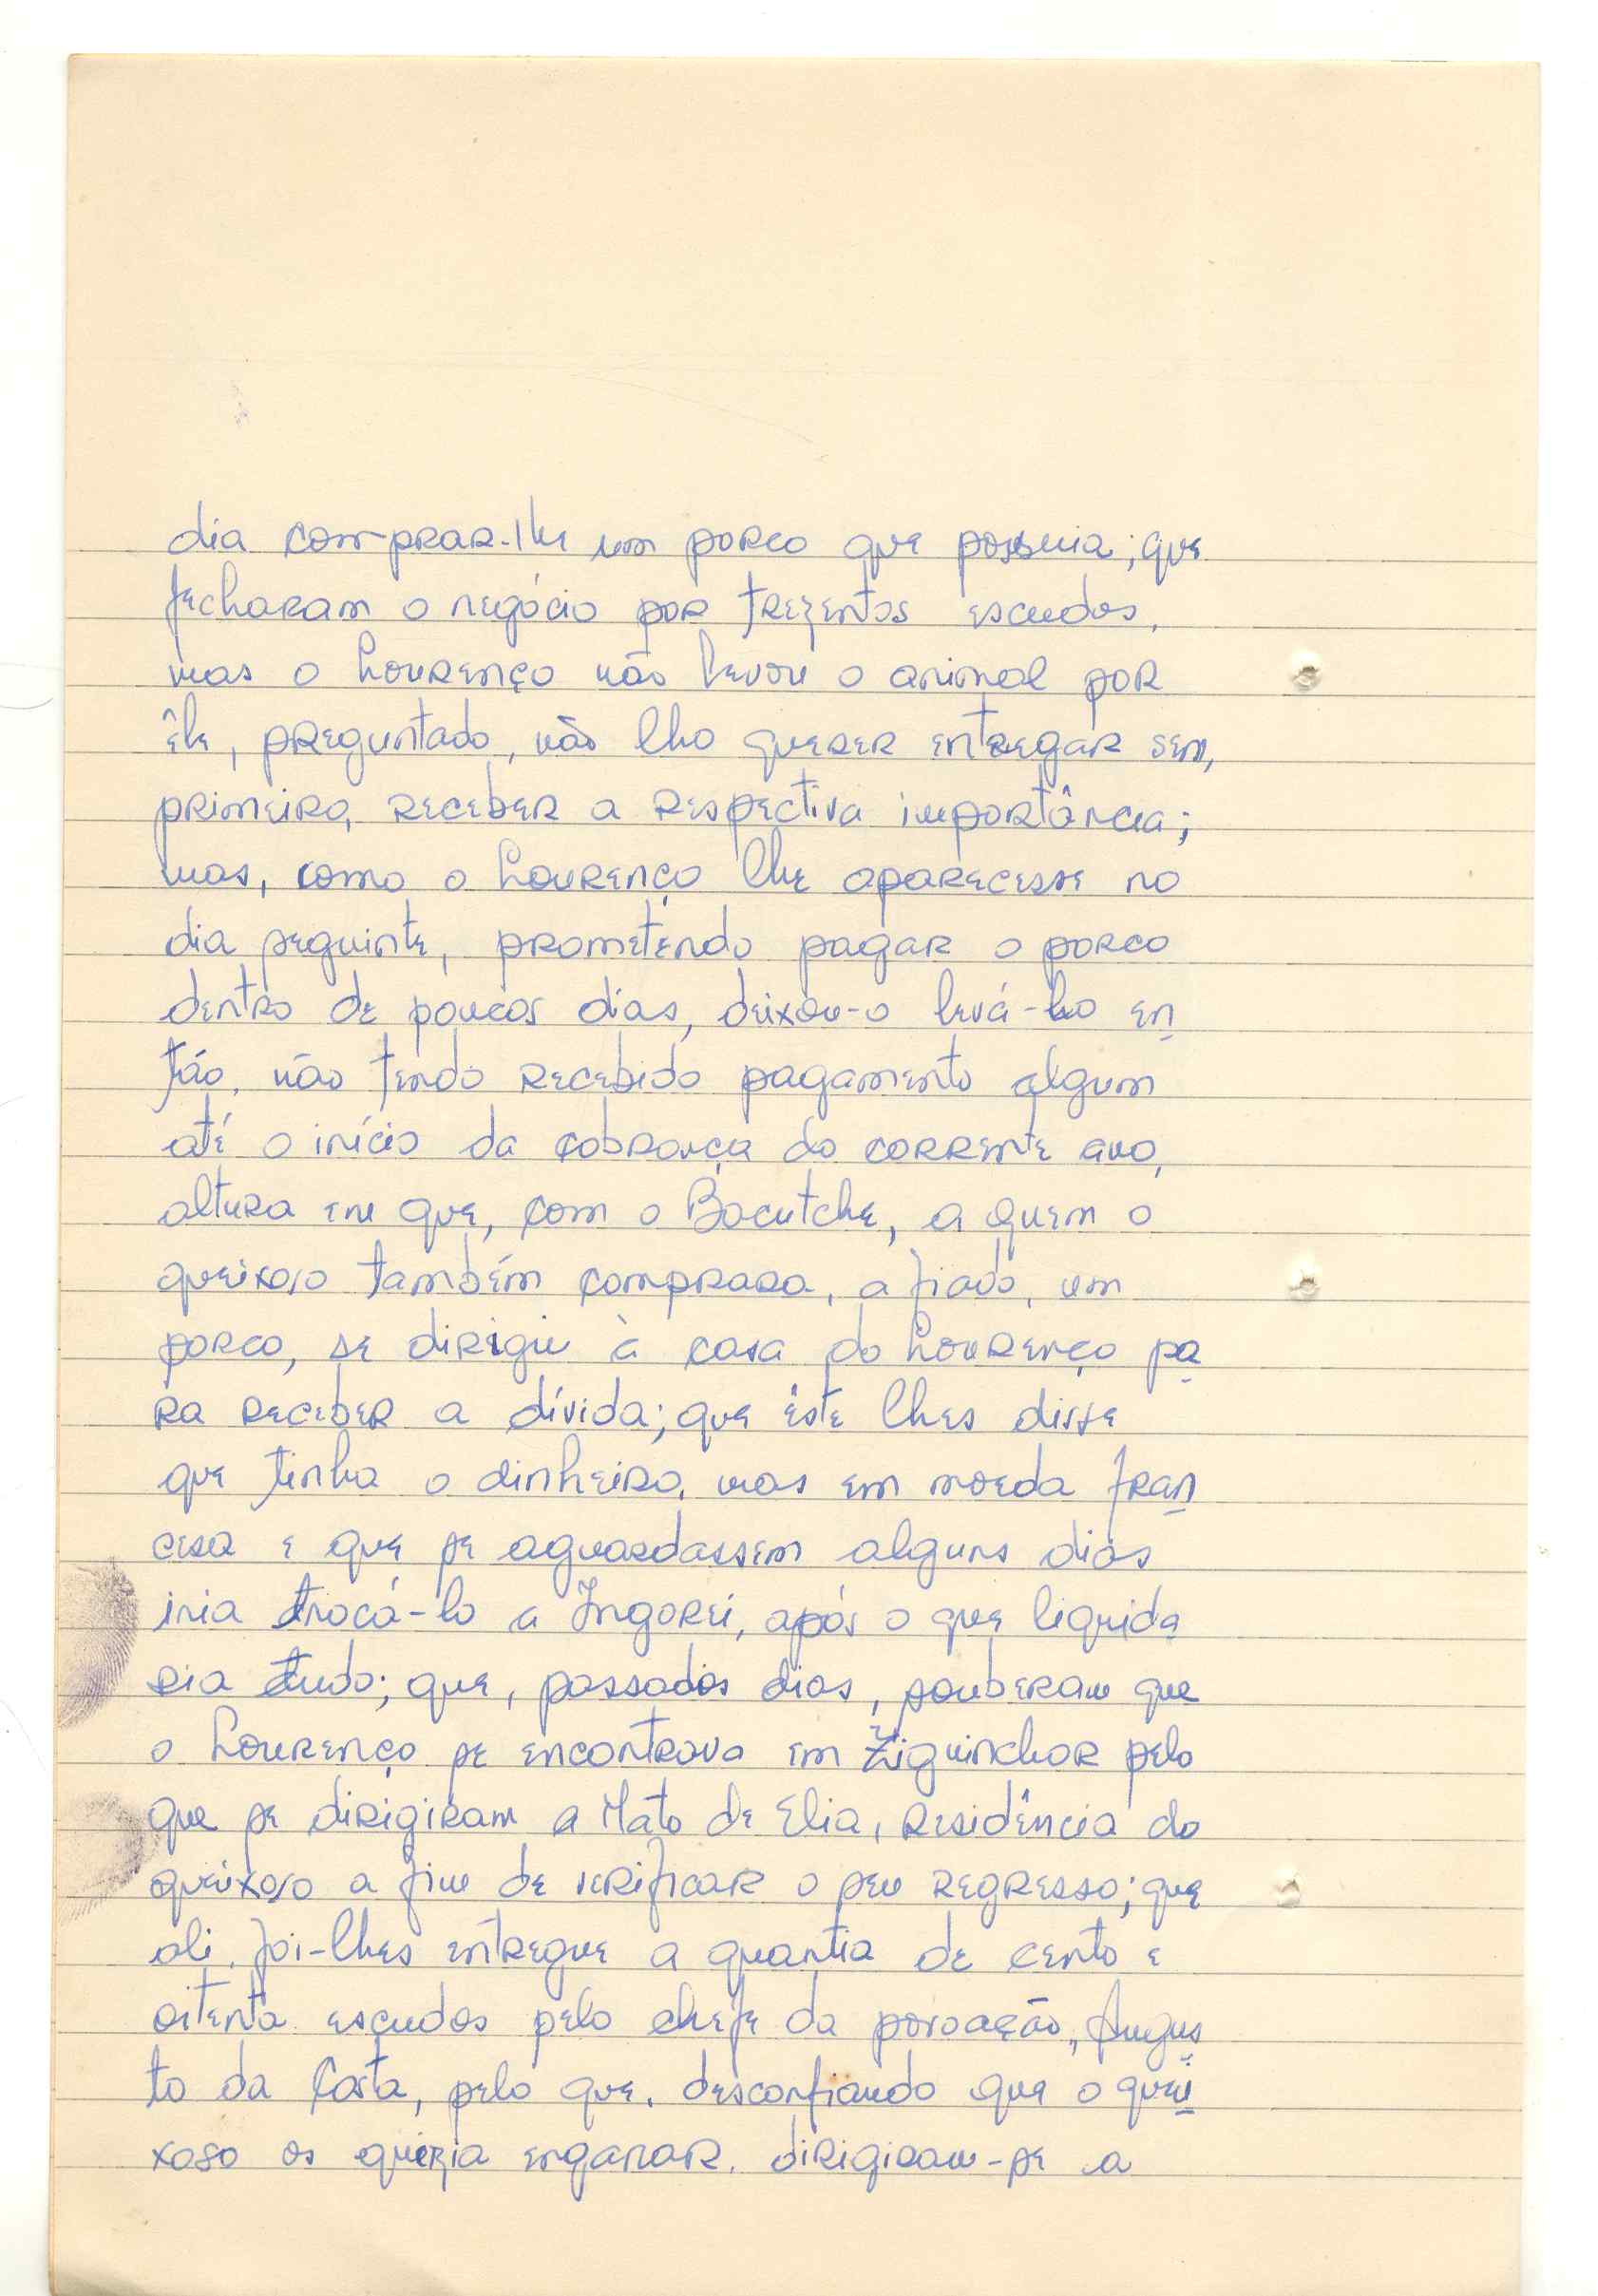 dia comprar-lhe um porco que possuia; que
fecharam o negócio por trezentos escudos,
mas o Lourenço não levou o animal por
êle, preguntado, não lho querer entregar sem,
primeiro, receber a respectiva importância;
mas, como o Lourenço lhe aparecesse no
dia seguinte, prometendo pagar o porco
dentro de poucos dias, deixou-o levá-lo en
tão, não tendo recebido pagamento algum
até o início da cobrança do corrente ano,
altura em que, com o Bacutche, a quem o
queixoso também comprara, a fiado, um
porco, se dirigiu à casa do Lourenço pa
ra receber a dívida; que êste lhes disse
que tinha o dinheiro, mas em moeda fran
cesa e que se aguardassem alguns dias
iria trocá-lo a Ingorei, após o que liquida
ria tudo; que, passados dias, souberam que
o Lourenço se encontrava em Ziguinchor pelo
que se dirigiram a Mato de Elia, residência do
queixoso a fim de verificar o seu regresso; que
ali, foi-lhes entregue a quantia de cento e
oitenta escudos pelo chefe da povoação, Augus
to da Costa, pelo que, desconfiando que o quei
xoso os queria enganar, dirigiram-se a